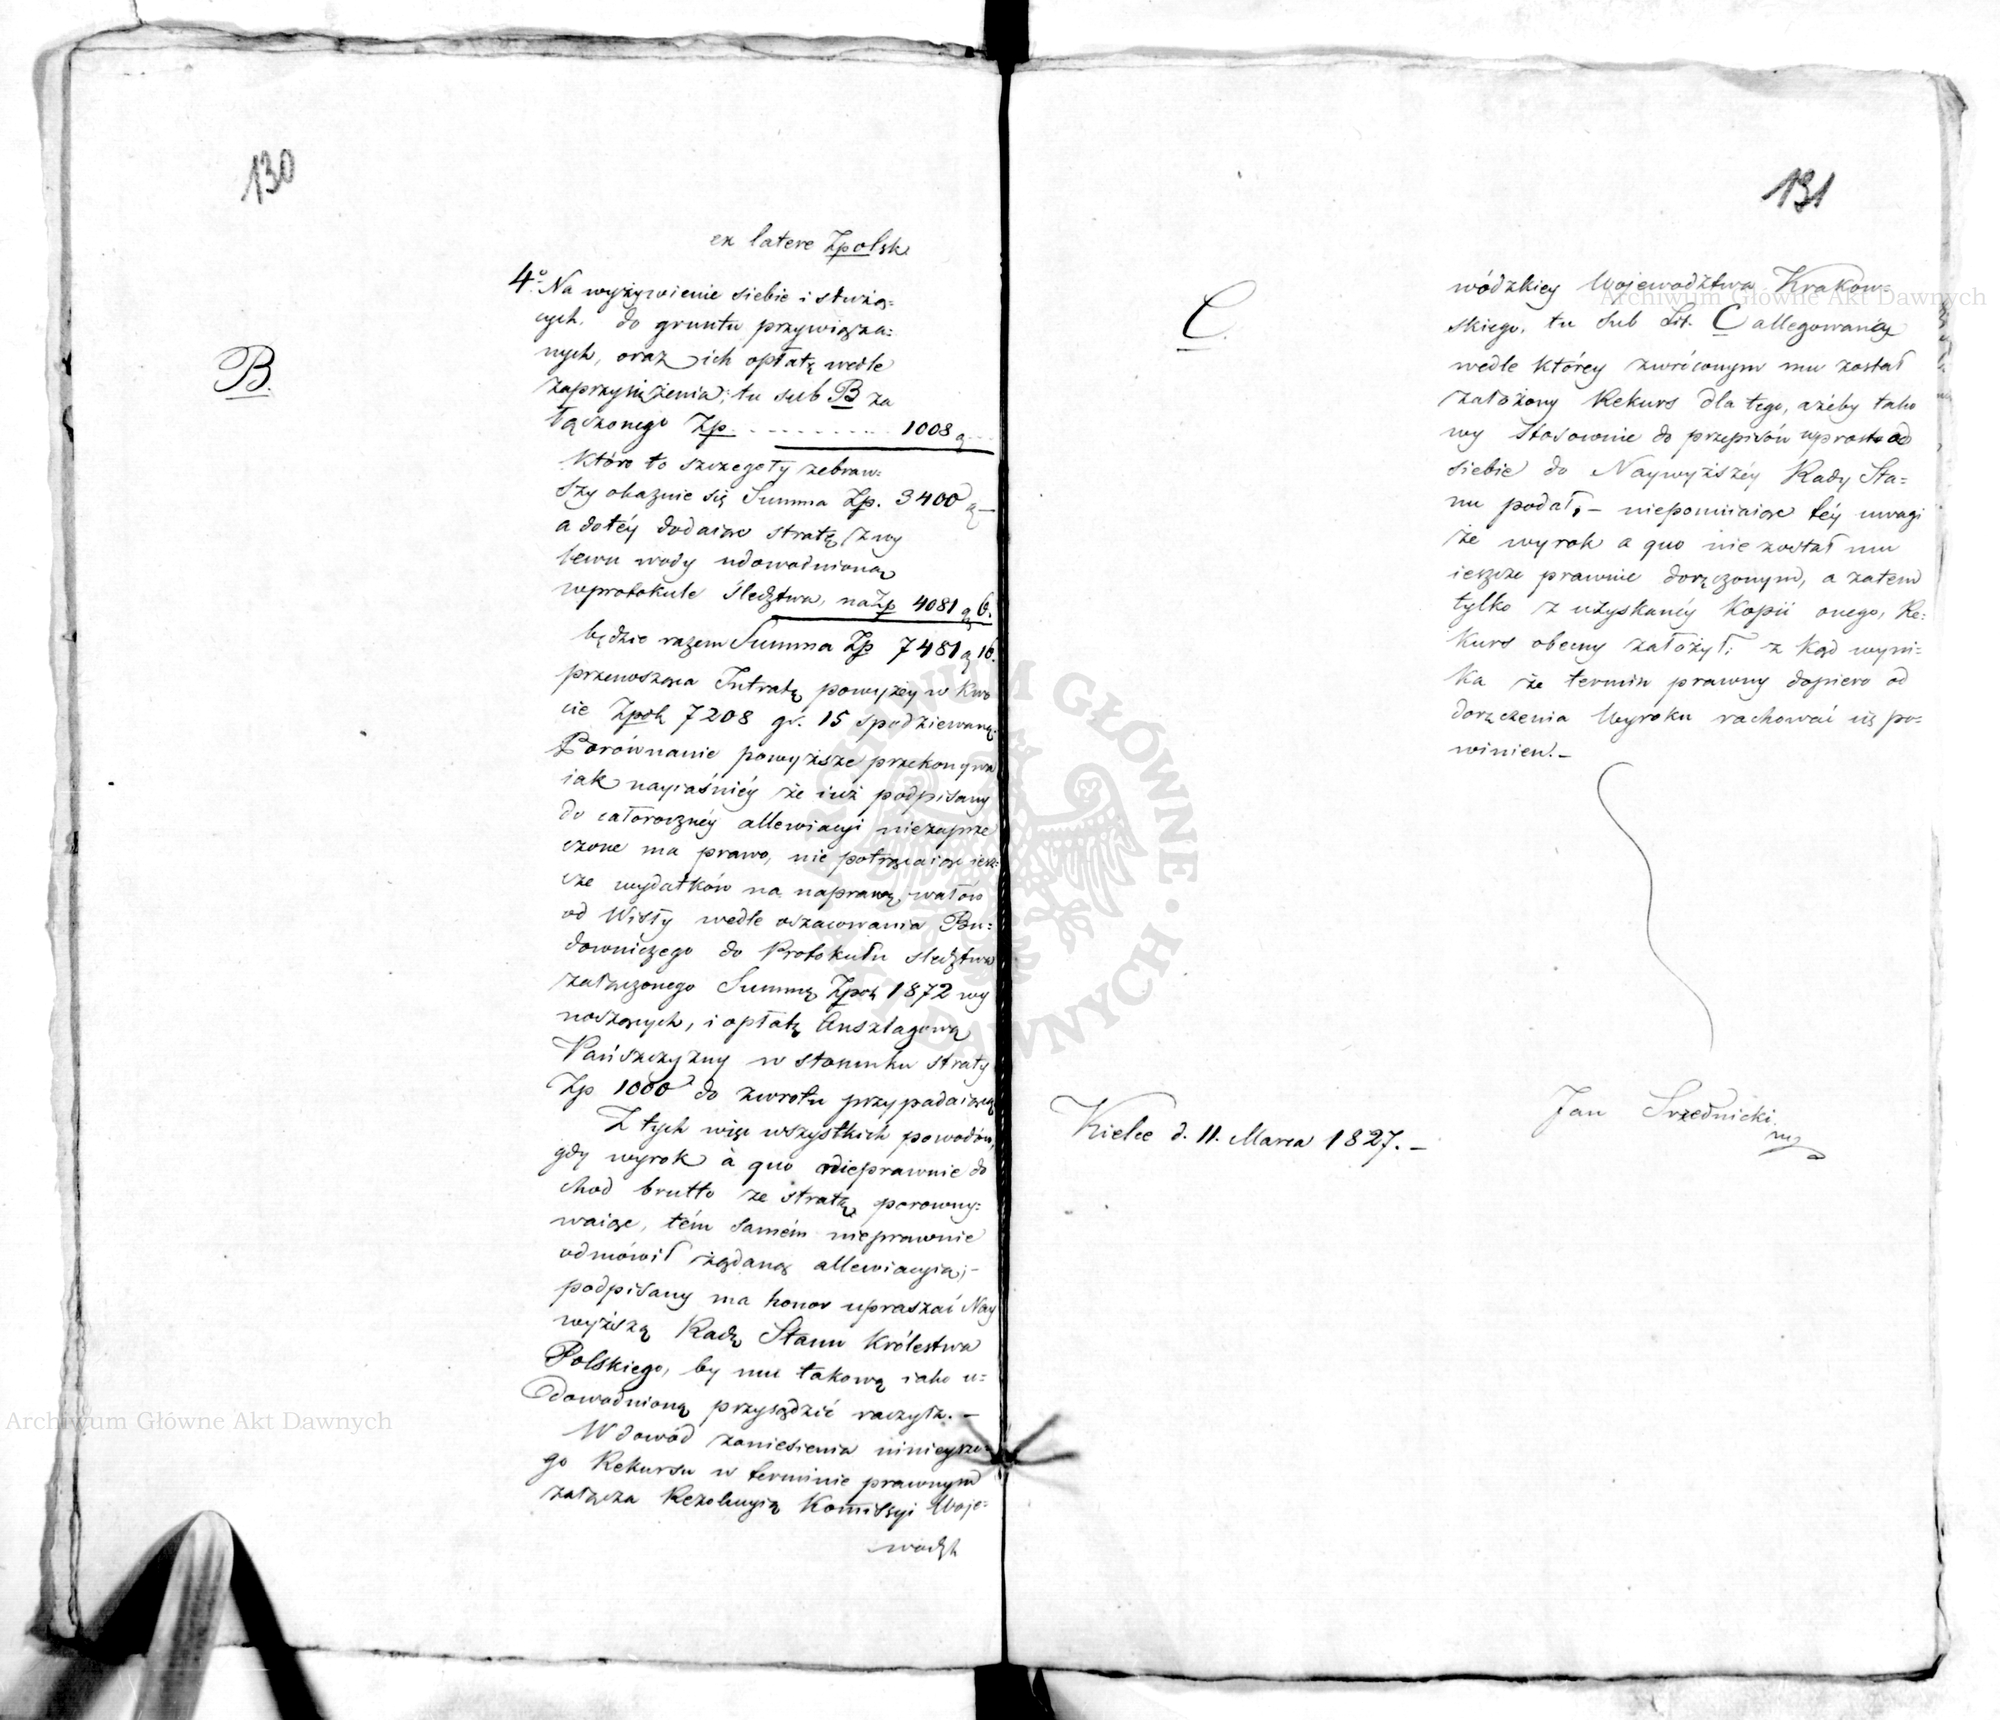 130
ex latere Zpolsk
4o Na wyżywienie siebie i służą=
cych, do gruntu przywiąza=
nych, oraz ich opłatę wedle
B.
zaprzysiężenia, tu sub B za
łączonego Zp. ......... 1008 g ...
które to szczegoły zebraw=
szy okazuie się Summa Zp. 3400 g —
a dotéy dodaiąc stratę z wy
lewu wody udowodnioną
wprotokule śledztwa, na Zp 4081 g 6.
będzie razem Summa Zp 7481 g 16.
przenosząca Intratę powyżey w kwo
cie Zpol. 7208 gr. 15 spodziewaną.
Porównanie powyższe przekonywa
iak nayiaśniéy że iuż podpisany
do całorocznéy allewiacyi niezaprze
czone ma prawo, nie potrącaiąc iesz=
cze wydatków na naprawę wałów
od Wisły wedle oszacowania Bu=
downiczego do Protokułu sledztwa
załączonego Summę Zpol 1872 wy
noszących, i opłatę Ansztagową
Pańszczyzny w stosunku straty
Zp 1000 do zwrotu przypadaiącą
Z tych więc wszystkich powodów,
gdy wyrok à quo nieprawnie do
chod brutto ze stratą, porowny=
waiąc, tém samém nieprawnie
odmówił żądaną allewiacyią; –
podpisany ma honor upraszać Nay
wyższą Radę Stanu Królestwa
Polskiego, by mu takową iako u=
dowodnioną przysądzić raczyła. –
W dowód zaniesienia ninieysze=
go Rekursu w terminie prawnym
załącza Rezolucyią Kommissyi Woje=
wodzk
131
C.
wódzkiey Województwa Krakow=
skiego, tu sub Lit. C allegowaną
wedle któréy zwróconym mu został
założony Rekurs dla tego, ażéby tako
wy stosownie do przepisów wprost od
siebie do Naywyższéy Rady Sta=
nu podał, – niepomniaiąc téy uwagi
że wyrok a quo nie został mu
ieszcze prawnie doręczonym, a zatem
tylko z uzyskanéy Kopii onego, Re=
kurs obecny założył: z kąd wyni=
ka że termin prawny dopiero od
doręczenia Wyroku rachować się po=
winien. –
Jan Srzednicki
mp
Kielce d. 11. Marca 1827. –
Archiwum Główne Akt Dawnych
Archiwum Główne Akt Dawnych
ARCHIWUM GŁÓWNE AKT DAWNYCH